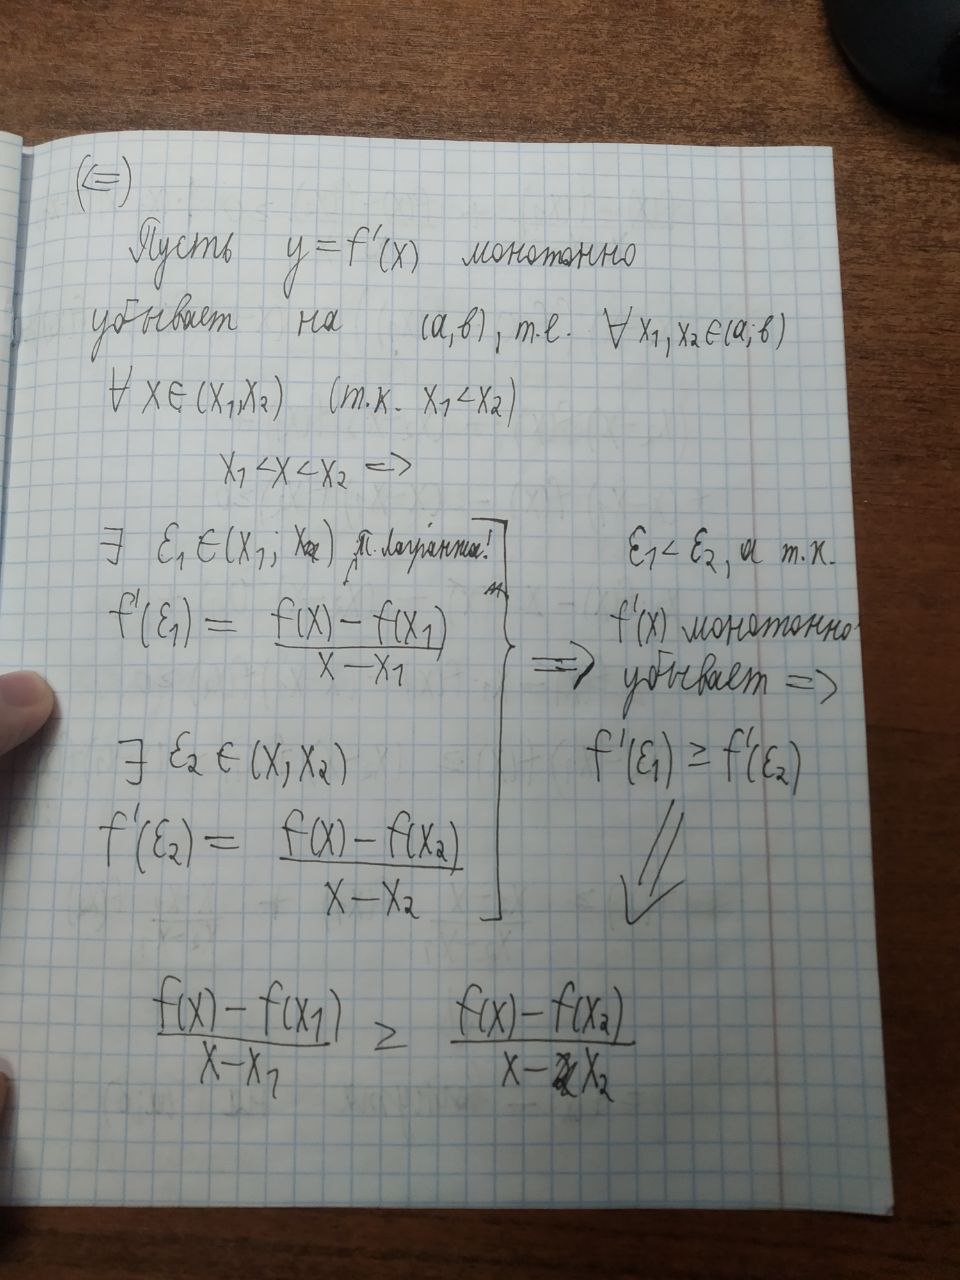 (<=)
Пусть y = f'(x) монотонно
убывает на (a,b), т.е. ∀ x₁, x₂ ∈ (a;b)
∀ x ∈ (x₁,x₂) (т.к. x₁ < x₂)
x₁ < x < x₂ =>
∃ ε₁ ∈ (x₁; x) т. Лагранжа!
f'(ε₁) = (f(x) − f(x₁)) / (x − x₁)
∃ ε₂ ∈ (x, x₂)
f'(ε₂) = (f(x) − f(x₂)) / (x − x₂)
=> ε₁ < ε₂, а т.к.
f'(x) монотонно
убывает =>
f'(ε₁) ≥ f'(ε₂)
(f(x) − f(x₁)) / (x − x₁) ≥ (f(x) − f(x₂)) / (x − x₂)